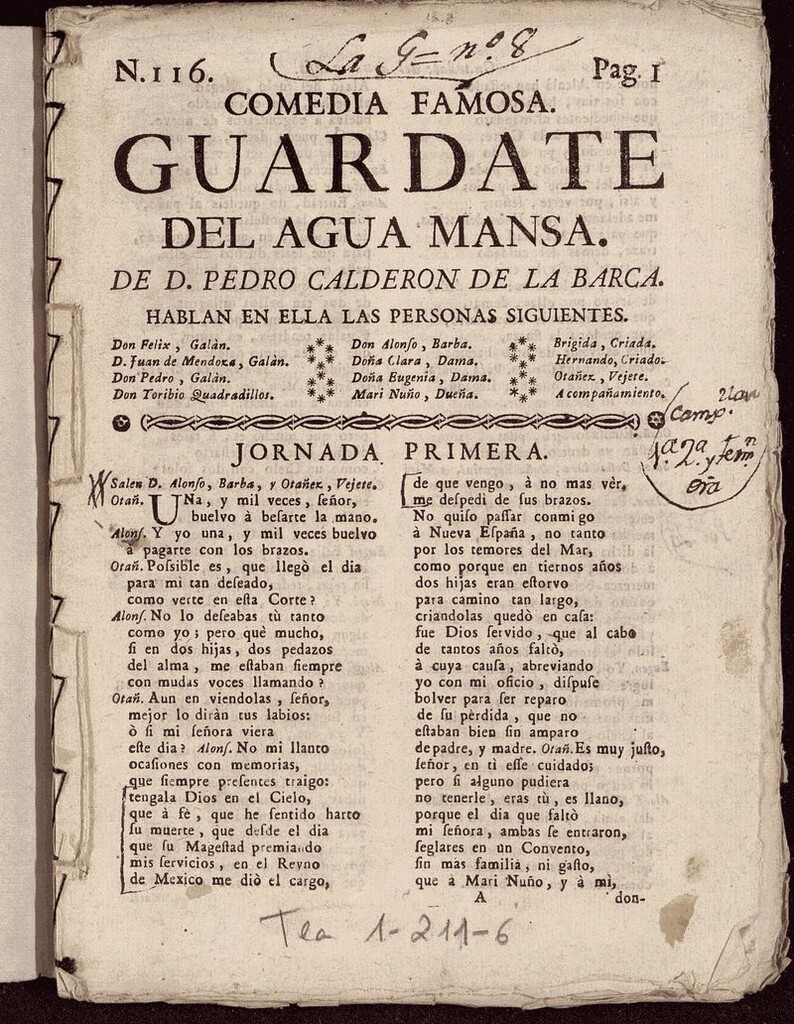 La G= nº. 8
N.116.
Pag. 1
COMEDIA FAMOSA.
GUARDATE
DEL AGUA MANSA.
DE D. PEDRO CALDERON DE LA BARCA.
HABLAN EN ELLA LAS PERSONAS SIGUIENTES.
Don Felix, Galàn.
D. Juan de Mendoza, Galàn.
Don Pedro, Galàn.
Don Toribio Quadradillos.
Don Alonſo, Barba.
Doña Clara, Dama.
Doña Eugenia, Dama.
Mari Nuño, Dueña.
Brigida, Criada.
Hernando, Criado.
Otañez, Vejete.
Acompañamiento.
Camp.
1ª. 2ª. y
JORNADA PRIMERA.
Salen D. Alonſo, Barba, y Otañez, Vejete.
Otañ. UNa, y mil veces, ſeñor,
buelvo à beſarte la mano.
Alonſ. Y yo una, y mil veces buelvo
à pagarte con los brazos.
Otañ. Poſsible es, que llegò el dia
para mì tan deſeado,
como verte en eſta Corte?
Alonſ. No lo deſeabas tù tanto
como yo; pero què mucho,
ſi en dos hijas, dos pedazos
del alma, me eſtaban ſiempre
con mudas voces llamando?
Otañ. Aun en viendolas, ſeñor,
mejor lo diràn tus labios:
ò ſi mi ſeñora viera
eſte dia? Alonſ. No mi llanto
ocaſiones con memorias,
que ſiempre preſentes traigo:
tengala Dios en el Cielo,
que à fè, que he ſentido harto
ſu muerte, que deſde el dia
que ſu Mageſtad premiando
mis ſervicios, en el Reyno
de Mexico me diò el cargo,
de que vengo, à no mas vèr,
me deſpedì de ſus brazos.
No quiſo paſſar conmigo
à Nueva Eſpaña, no tanto
por los temores del Mar,
como porque en tiernos años
dos hijas eran eſtorvo
para camino tan largo,
criandolas quedò en caſa:
fue Dios ſervido, que al cabo
de tantos años faltò,
à cuya cauſa, abreviando
yo con mi oficio, diſpuſe
bolver para ſer reparo
de ſu pèrdida, que no
eſtaban bien ſin amparo
de padre, y madre. Otañ. Es muy juſto,
ſeñor, en tì eſſe cuidado;
pero ſi alguno pudiera
no tenerle, eras tù, es llano,
porque el dia que faltò
mi ſeñora, ambas ſe entraron,
ſeglares en un Convento,
ſin mas familia, ni gaſto,
que à Mari Nuño, y à mì,
A
don-
Tea 1-211-6